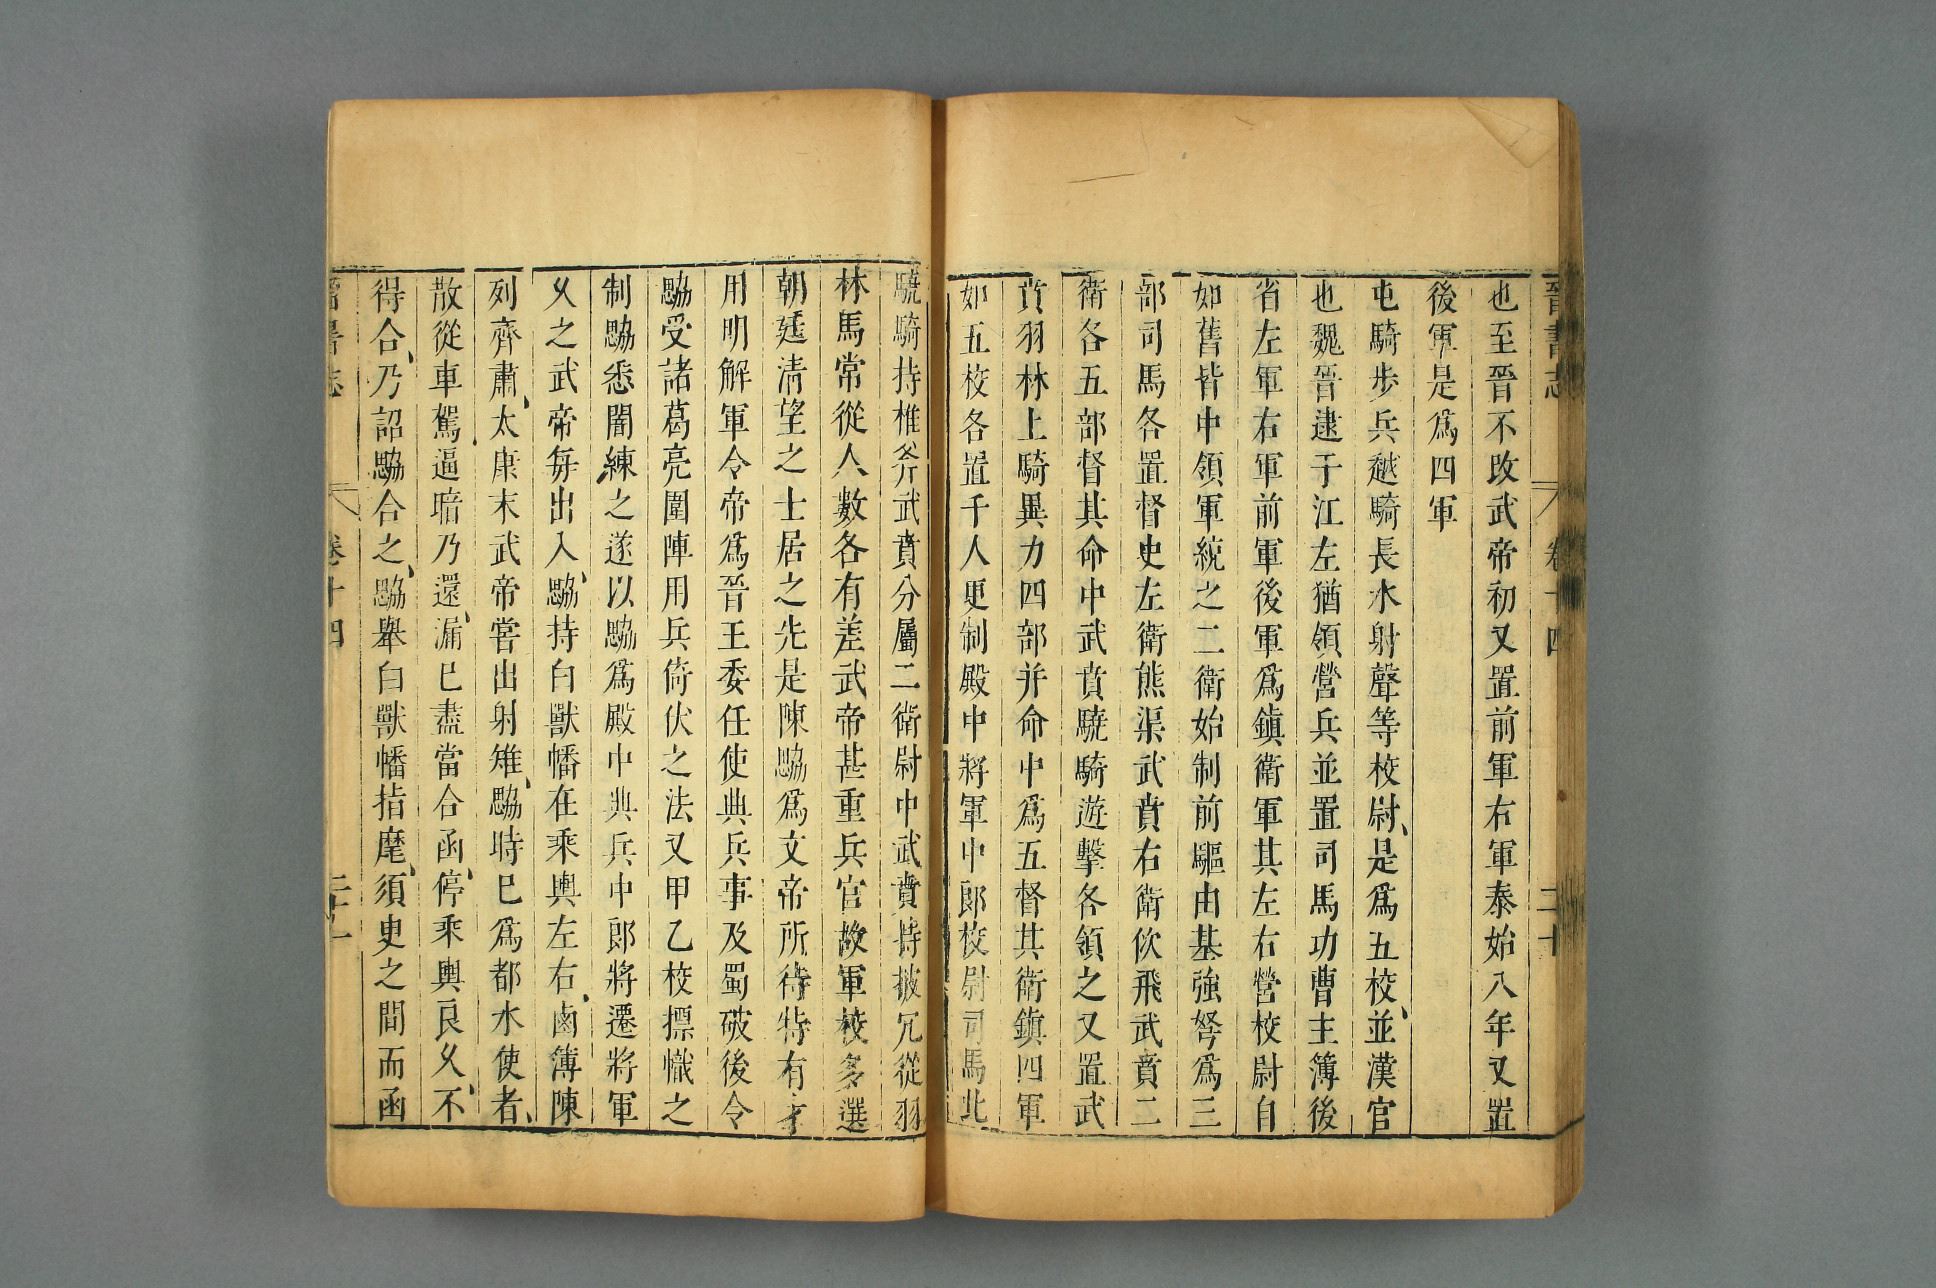 晉書志 卷十四 二十
也至晉不改武帝初又置前軍右軍泰始八年又置
後軍是爲四軍
屯騎步兵越騎長水射聲等校尉是爲五校並漢官
也魏晉逮于江左猶領營兵並置司馬功曹主簿後
省左軍右軍前軍後軍爲鎮衛軍其左右營校尉自
如舊皆中領軍統之二衛始制前驅由基強弩爲三
部司馬各置督史左衛熊渠武賁右衛佽飛武賁二
衛各五部督其命中武賁驍騎遊擊各領之又置武
賁羽林上騎異力四部并命中爲五督其衛鎮四軍
如五校各置千人更制殿中將軍中郎校尉司馬比
驍騎持椎斧武賁分屬二衛尉中武賁持鈹冗從羽
林馬常從人數各有差武帝甚重兵官故軍校多選
朝廷清望之士居之先是陳勰爲文帝所待特有才
用明解軍令帝爲晉王委任使典兵事及蜀破後令
勰受諸葛亮圍陣用兵倚伏之法又甲乙校摽幟之
制勰悉闇練之遂以勰爲殿中典兵中郎將遷將軍
久之武帝每出入勰持白獸幡在乘輿左右鹵簿陳
列齊肅太康末武帝嘗出射雉勰時已爲都水使者
散從車駕逼暗乃還漏已盡當合函停乘輿良久不
得合乃詔勰合之勰舉白獸幡指麾須臾之間而函
晉書志 卷十四 二十一